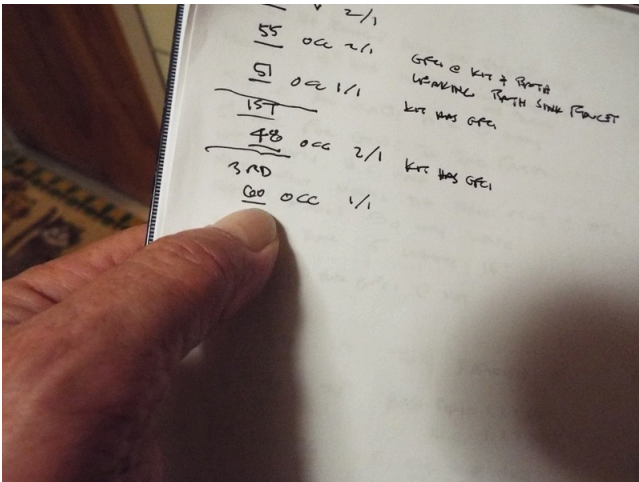 V 2/1
55 OCC 2/1 GFCI @ KIT & BATH
LEAKING BATH SINK FAUCET
51 OCC 1/1 KIT HAS GFCI
1ST
48 OCC 2/1 KIT HAS GFCI
3RD
60 OCC 1/1